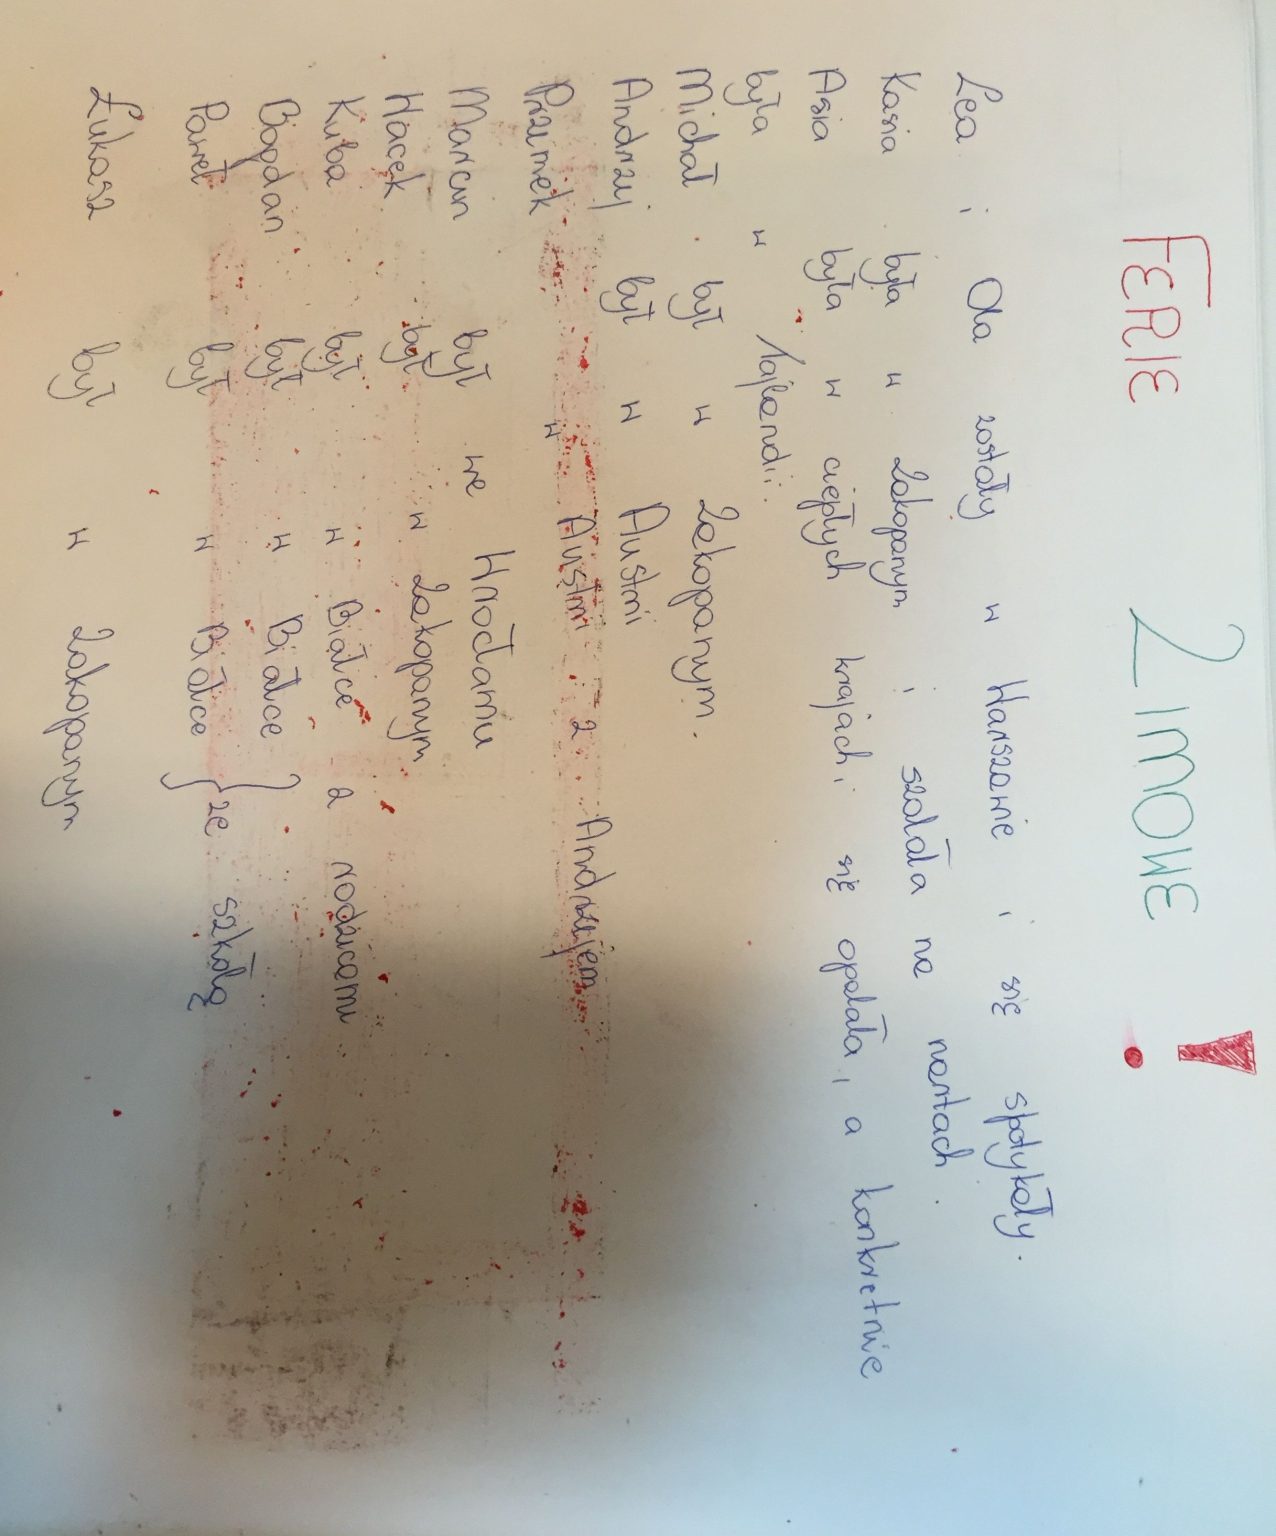 FERIE ZIMOWE!
Lea i Ola zostały w Warszawie i się spotykały.
Kasia była w Zakopanym i szalała na nartach.
Asia była w ciepłych krajach i się opalała, a konkretnie
była w Tajlandii.
Michał był w Zakopanym.
Andrzej był w Austrii
Przemek w Austrii z Andrzejem
Marcin był we Wrocławiu
Wacek był w Zakopanym
Kuba był w Białce z rodzicami
Bogdan był w Białce
Paweł był w Białce } ze szkołą
Łukasz był w Zakopanym